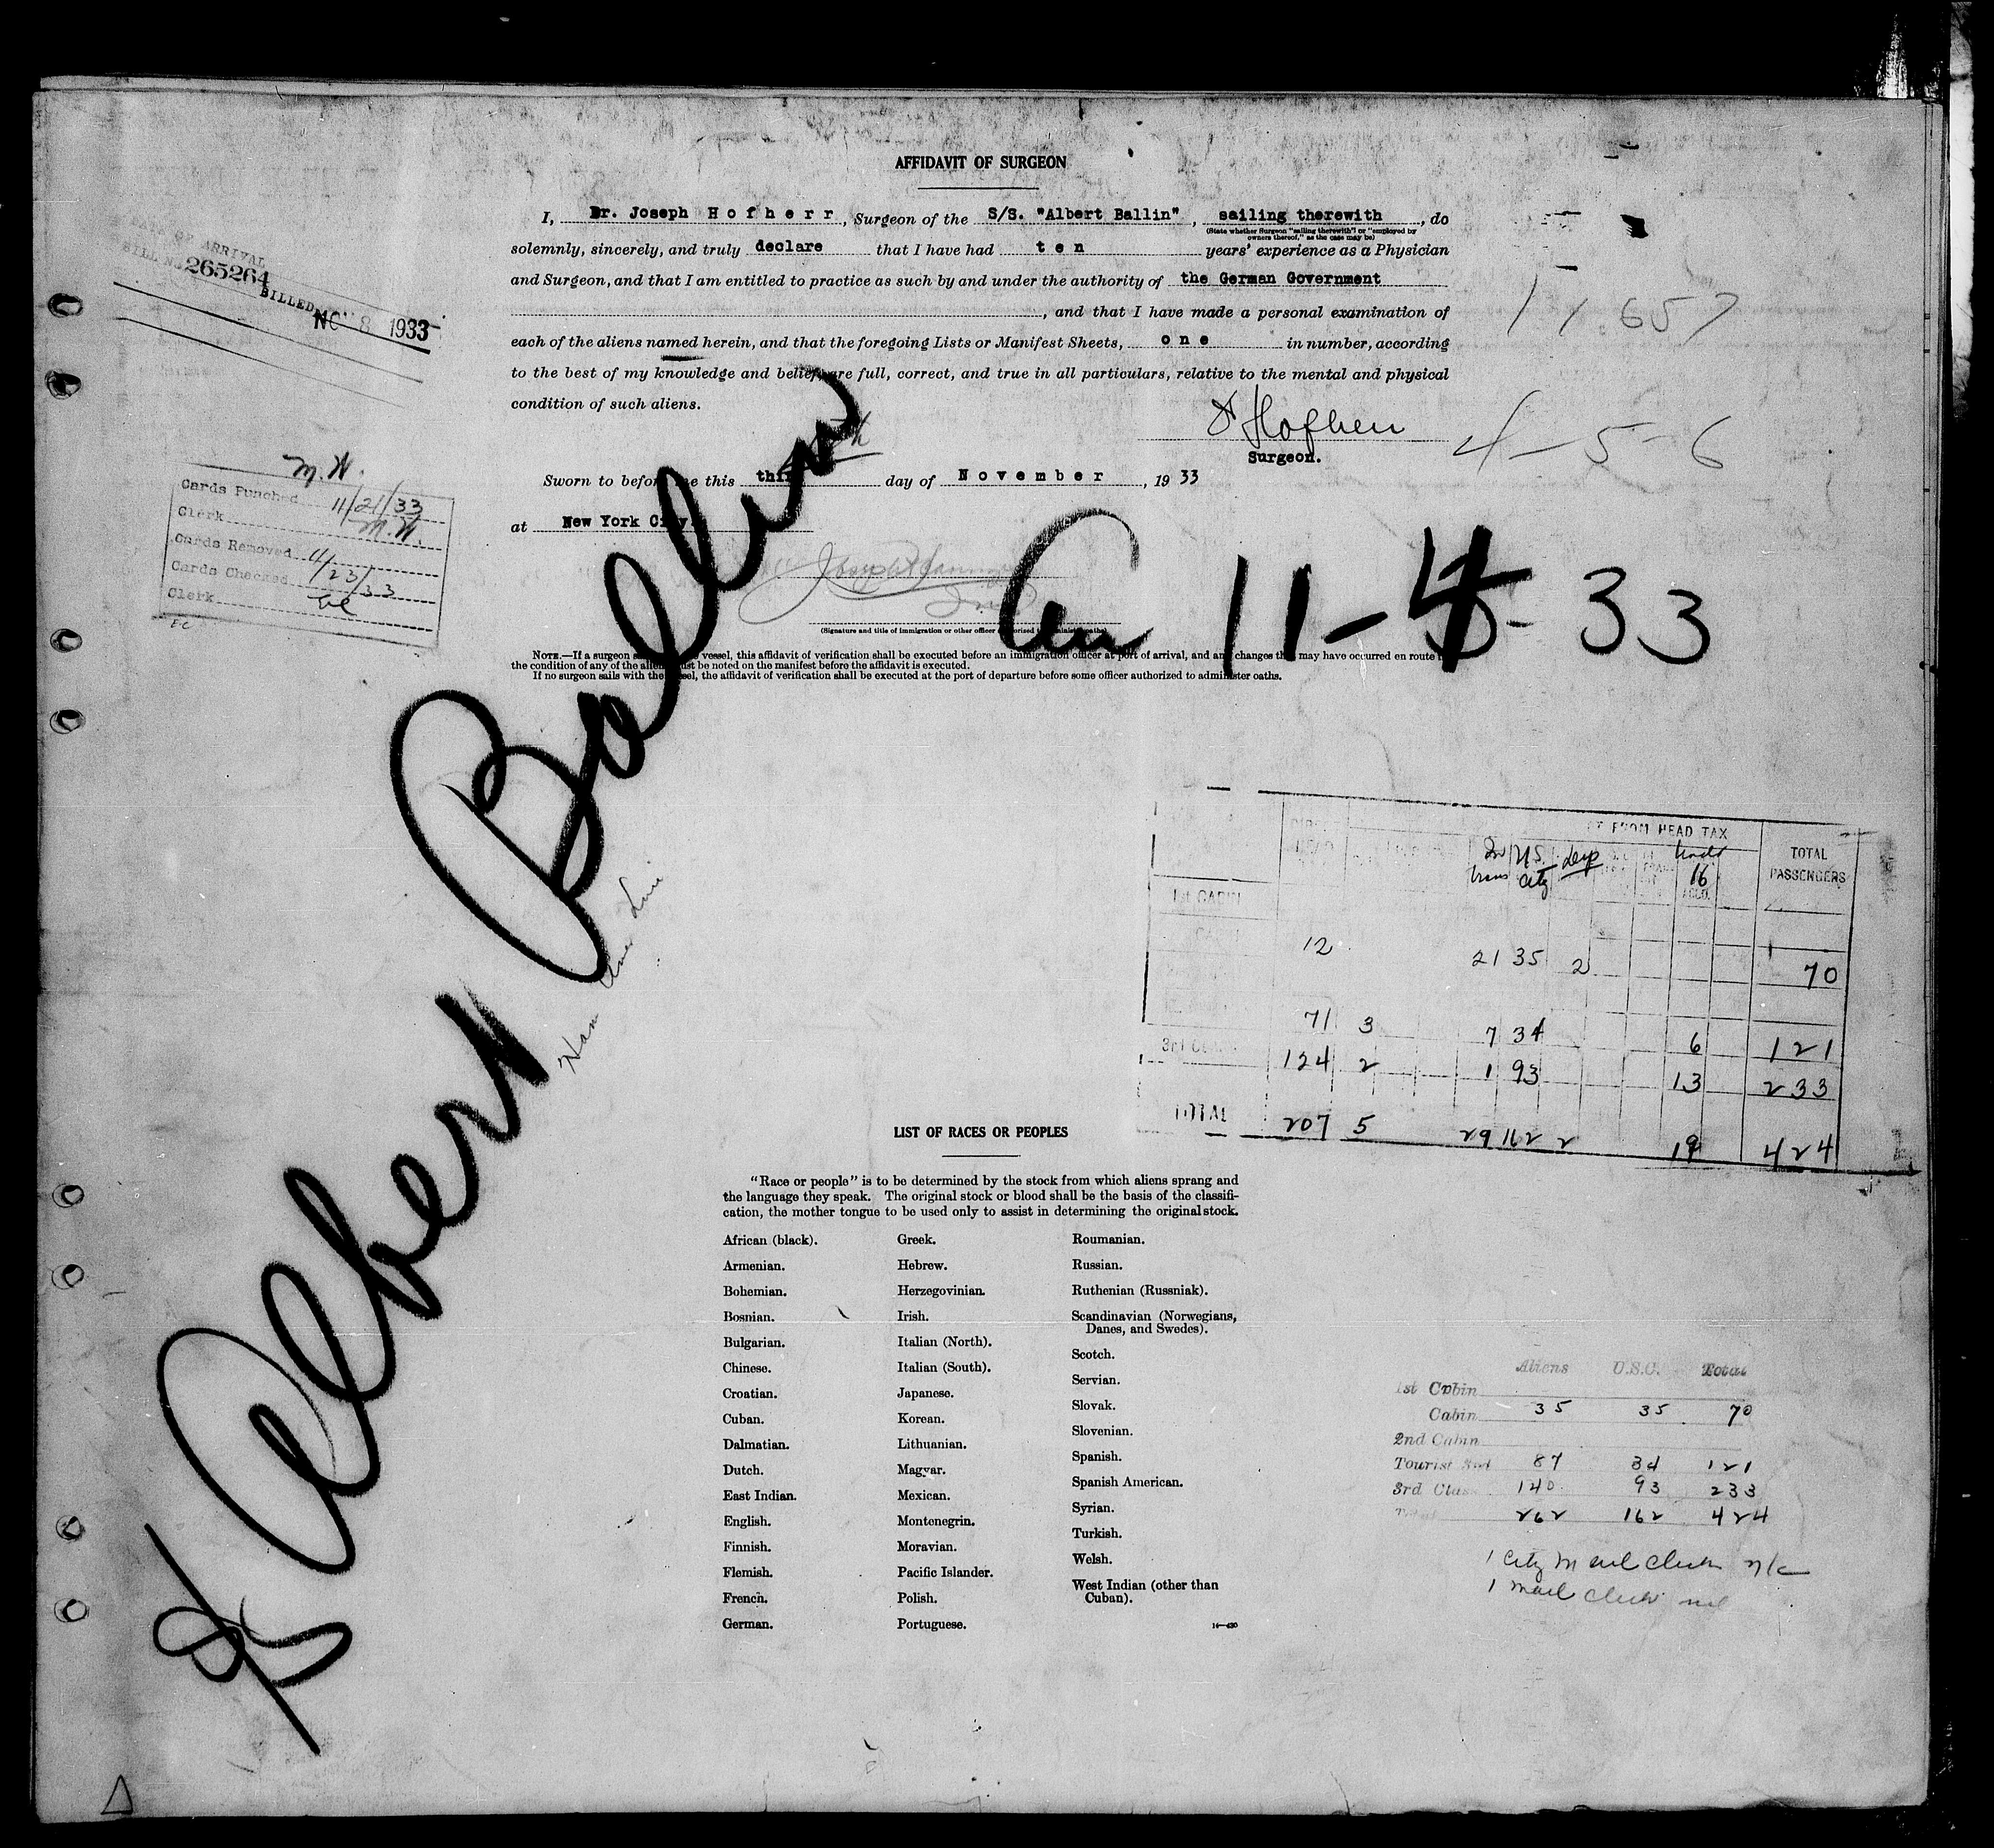 AFFIDAVIT OF SURGEON
I, Dr. Joseph Hofherr, Surgeon of the S/S. "Albert Ballin", sailing therewith, do
(State whether Surgeon "sailing therewith" or "employed by
owners thereof," as the case may be)
solemnly, sincerely, and truly declare that I have had ten years' experience as a Physician
and Surgeon, and that I am entitled to practice as such by and under the authority of the German Government
, and that I have made a personal examination of
each of the aliens named herein, and that the foregoing Lists or Manifest Sheets, one in number, according
to the best of my knowledge and belief, are full, correct, and true in all particulars, relative to the mental and physical
condition of such aliens.
Surgeon.
Sworn to before me this day of November, 19 33
at New York City
(Signature and title of immigration or other officer authorized to administer oaths)
NOTE.—If a surgeon vessel, this affidavit of verification shall be executed before an immigration officer at port of arrival, and any changes that may have occurred en route
the condition of any of the aliens must be noted on the manifest before the affidavit is executed.
If no surgeon sails with the vessel, the affidavit of verification shall be executed at the port of departure before some officer authorized to administer oaths.
DATE OF ARRIVAL
BILL No. 265264
BILLED NOV 8 1933
11657
4-5-6
M.W.
Cards Punched 11/21/33
Clerk M.W.
Cards Removed
Cards Checked 11/23/33
Clerk
E.C
Albert Ballin
Ham Amer Line
11- -33
FROM HEAD TAX
TOTAL
PASSENGERS
U.S.
City
16
1st CABIN
12 21 35 2 70
71 3 7 34 6 121
124 2 1 93 13 233
TOTAL 207 5 29 162 2 19 424
LIST OF RACES OR PEOPLES
"Race or people" is to be determined by the stock from which aliens sprang and
the language they speak. The original stock or blood shall be the basis of the classifi-
cation, the mother tongue to be used only to assist in determining the original stock.
African (black).
Armenian.
Bohemian.
Bosnian.
Bulgarian.
Chinese.
Croatian.
Cuban.
Dalmatian.
Dutch.
East Indian.
English.
Finnish.
Flemish.
French.
German.
Greek.
Hebrew.
Herzegovinian.
Irish.
Italian (North).
Italian (South).
Japanese.
Korean.
Lithuanian.
Magyar.
Mexican.
Montenegrin.
Moravian.
Pacific Islander.
Polish.
Portuguese.
Roumanian.
Russian.
Ruthenian (Russniak).
Scandinavian (Norwegians,
Danes, and Swedes).
Scotch.
Servian.
Slovak.
Slovenian.
Spanish.
Spanish American.
Syrian.
Turkish.
Welsh.
West Indian (other than
Cuban).
Aliens U.S.C. Total
1st Cabin
Cabin 35 35 70
2nd Cabin
Tourist 3rd 87 34 121
3rd Class 140 93 233
Total 262 162 424
1 City Mail Clerk
1 Mail Clerk